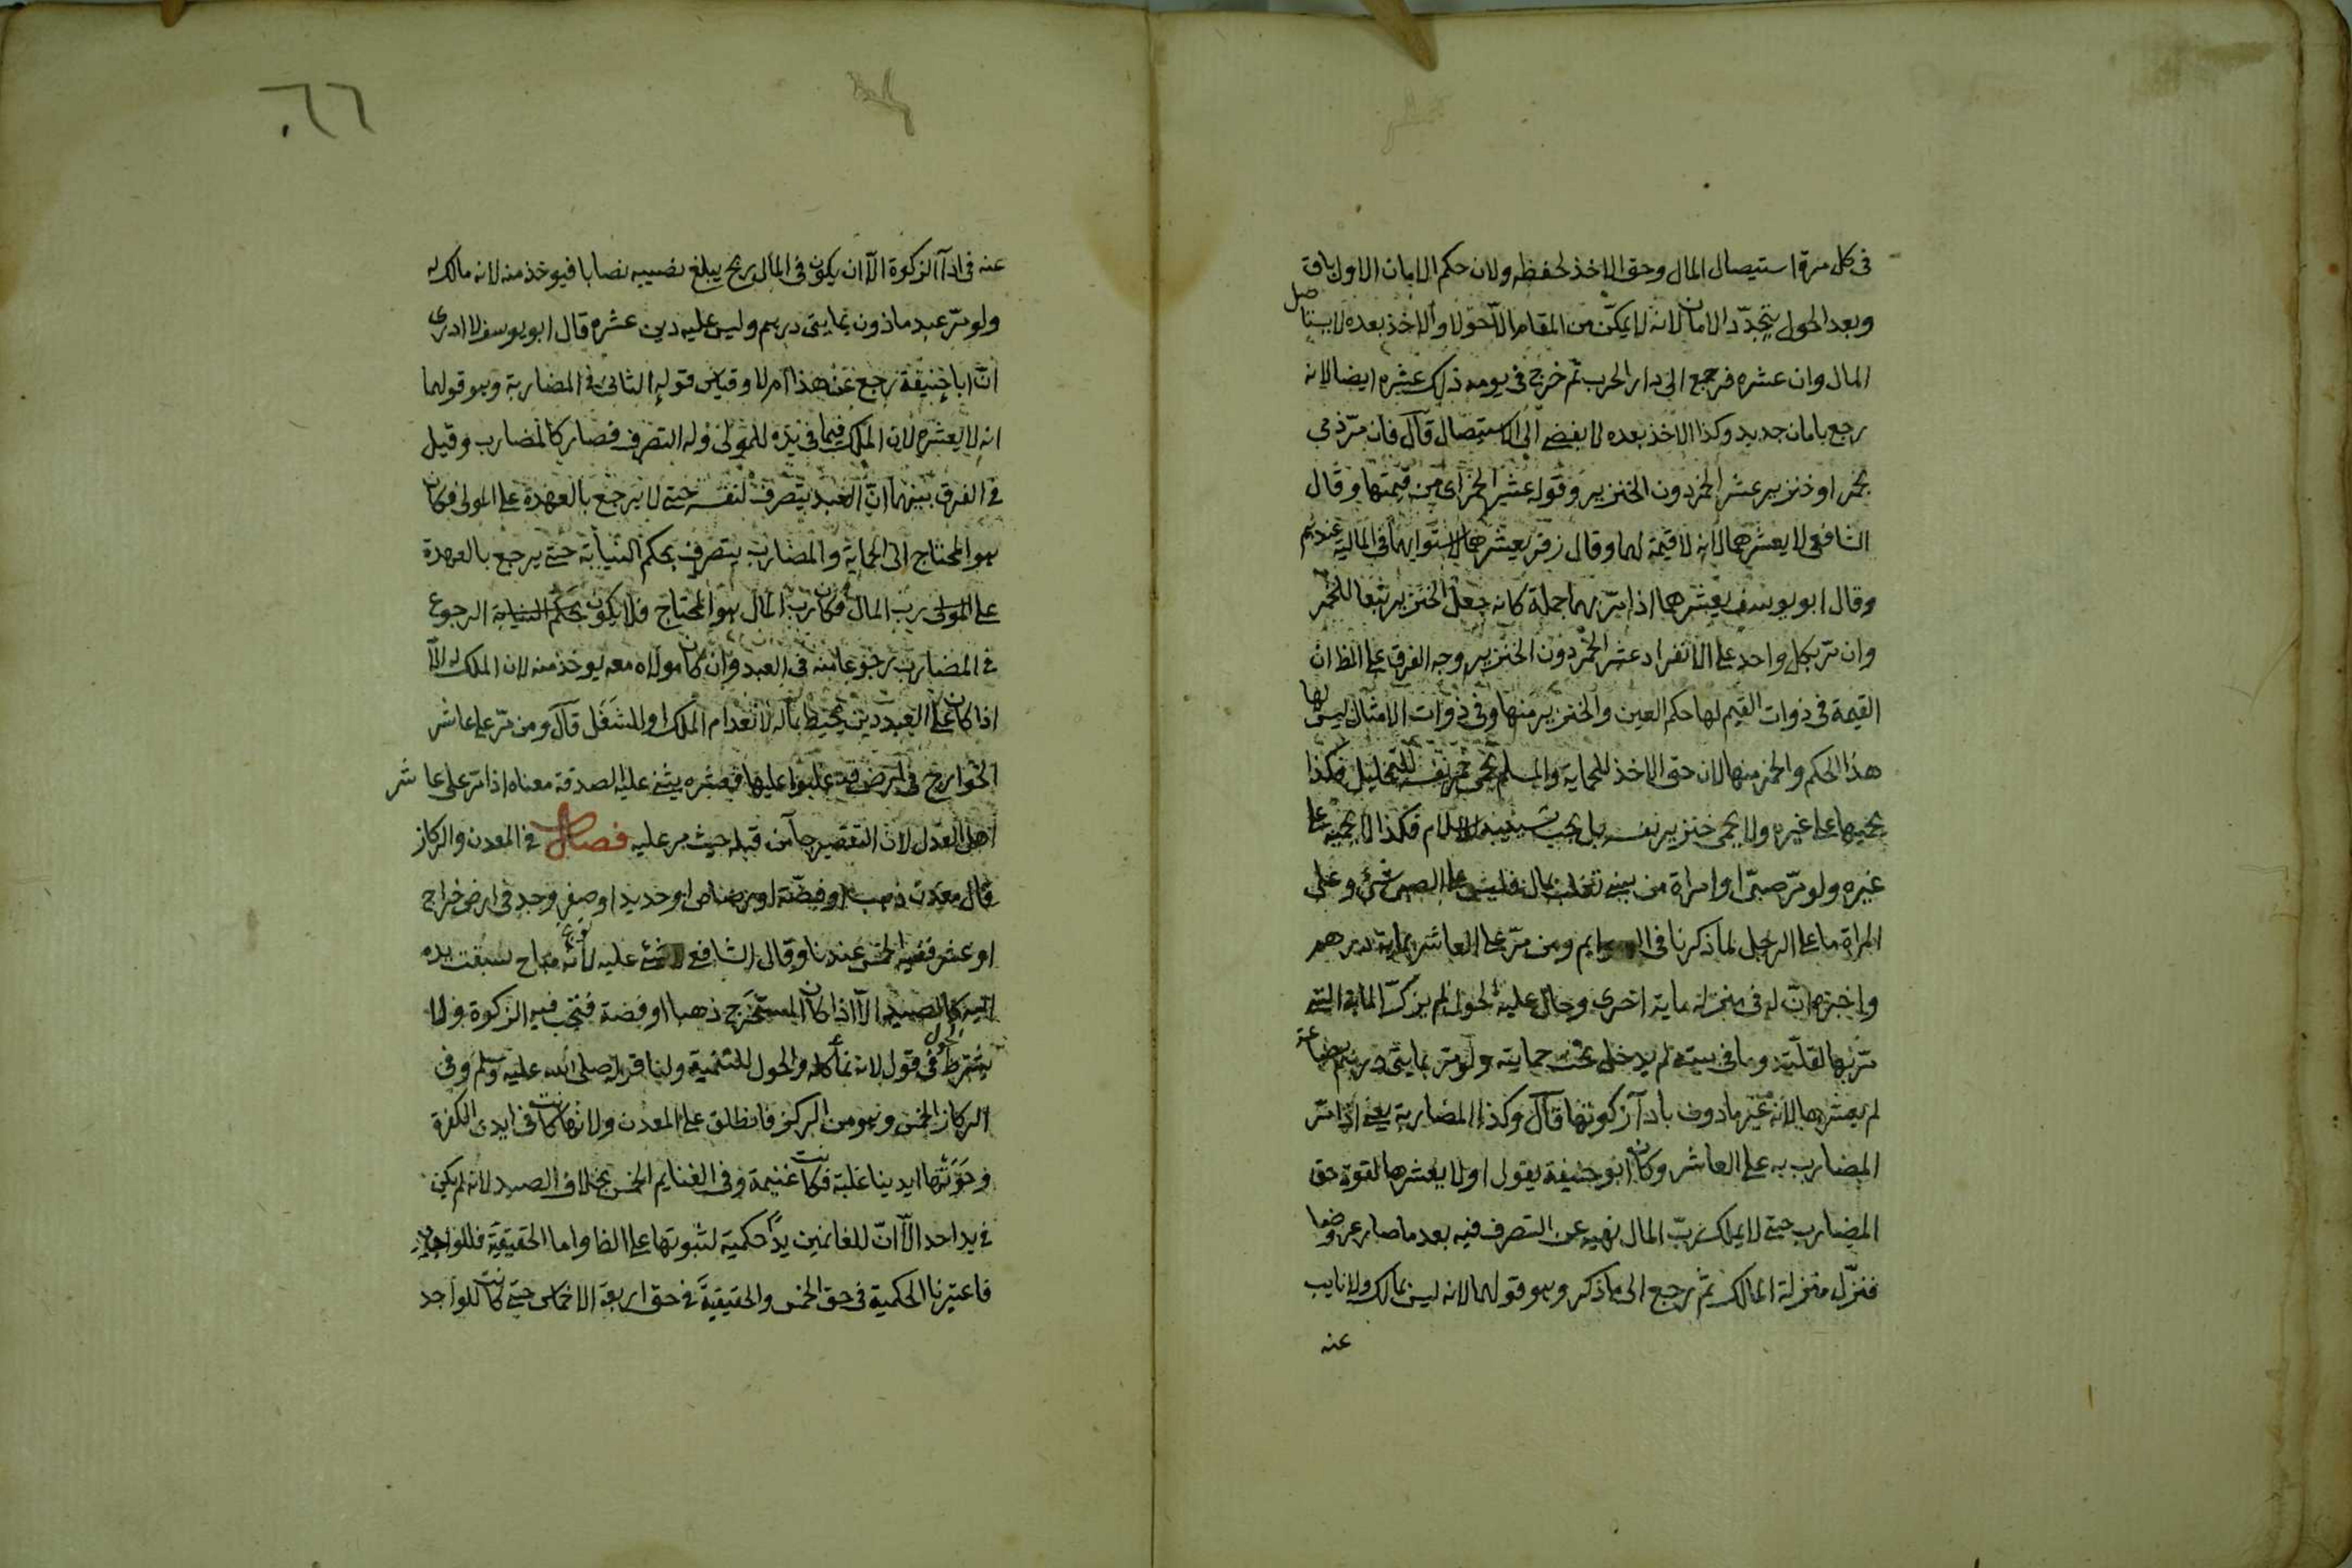 فى كل مرة استيصال المال وحق الاخذ لحفظه ولان حكم الامان الاول باق
وبعد الحول يتجدد الامان لانه لا يمكن من المقام الا حولا والاخذ بعده لا يستاصل
المال وان عشره فرجع الى دار الحرب ثم خرج فى يومه ذلك عشره ايضا لانه
رجع بامان جديد وكذا الاخذ بعده لا يفضى الى الاستيصال قال فان مرّ ذمى
بخمر او خنزير عشر الخمر دون الخنزير وقوله عشر الخمر اى من قيمتها وقال
الشافعى لا يعشرهما لانه لا قيمة لهما وقال زفر يعشرهما لاستوايهما فى المالية عندهم
وقال ابو يوسف يعشرهما اذا مرّ بهما جملة كانه جعل الخنزير تبعا للخمر
وان مرّ بكل واحد على الانفراد عشر الخمر دون الخنزير وجه الفرق على الظ ان
القيمة فى ذوات القيم لها حكم العين والخنزير منها وفى ذوات الامثال ليس لها
هذا الحكم والخمر منها لان حق الاخذ للحماية والمسلم يحمى خمر نفسه للتخليل فكذا
يحميها على غيره ولا يحمى خنزير نفسه بل يجب تسييبه بالاسلام فكذا لا يحميه على
غيره ولو مرّ صبى او امراة من بنى تغلب بمال فليس على الصبى شئ وعلى
المراة ما على الرجل لما ذكرنا فى السوايم ومن مرّ على العاشر بماية درهم
واخبره ان له فى منزله ماية اخرى وحال عليه الحول لم يزكّ الماية التى
مرّ بها لقلته وما فى بيته لم يدخل تحت حمايته ولو مر بمايتى درهم بضاعة
لم يعشرها لانه غير ماذون باداء زكوتها قال وكذا المضاربة يعنى اذا مرّ
المضارب به على العاشر وكان ابو حنيفة يقول اولا يعشرها لقوة حق
المضارب حتى لا يملك ربّ المال نهيه عن التصرف فيه بعد ما صار عروضا
فنزّل منزلة المالك ثم رجع الى ما ذكر وهو قولهما لانه ليس بمالك ولا نايب
عنه
٦٦
عنه فى اداء الزكوة الا ان يكون فى المال ربح يبلغ نصيبه نصابا فيوخذ منه لانه مالك له
ولو مرّ عبد ماذون بمايتى درهم وليس عليه دين عشره قال ابو يوسف لا ادرى
انّ ابا حنيفة رجع عن هذا ام لا وقياس قوله الثانى فى المضاربة وهو قولهما
انه لا يعشره لان الملك فيما فى يده للمولى وله التصرف فصار كالمضارب وقيل
فى الفرق بينهما انّ العبد يتصرف لنفسه حتى لا يرجع بالعهدة على المولى فكان
هو المحتاج الى الحماية والمضارب يتصرف بحكم النيابة حتى يرجع بالعهدة
على المولى رب المال فكان رب المال هو المحتاج فلا يكون بحكم النيابة الرجوع
فى المضارب رجوعا منه فى العبد وان كان مولاه معه يوخذ منه لان الملك له الاّ
اذا كان على العبد دين يحيط بماله لانعدام الملك او للشغل قال ومن مرّ على عاشر
الخوارج فى ارض قد غلبوا عليها فعشره يثنى عليه الصدقة معناه اذا مر على عاشر
اهل العدل لان التقصير جاء من قبله حيث مر عليه فصل فى المعدن والركاز
قال معدن ذهب او فضّة او رصاص او حديد او صفر وجد فى ارض خراج
او عشر ففيه الخمس عندنا وقال الشافعى لا شئ عليه لانه مباح سبقت يده
اليه كالصيد الاّ اذا كان المستخرج ذهبا او فضة فتجب فيه الزكوة ولا
يشترط الحول فى قول لانه نماء كله والحول للتنمية ولنا قوله صلى الله عليه وسلم وفى
الركاز الخمس وهو من الركز فانطلق على المعدن ولانها كانت فى ايدى الكفرة
وحوتها ايدينا غلبة فكانت غنيمة وفى الغنايم الخمس بخلاف الصيد لانه لم يكن
فى يد احد الاّ انّ للغانمين يدًا حكمية لثبوتها على الظ واما الحقيقية فللواجد
فاعتبرنا الحكمية فى حق الخمس والحقيقية فى حق اربعة الاخماس حتى كانت للواجد